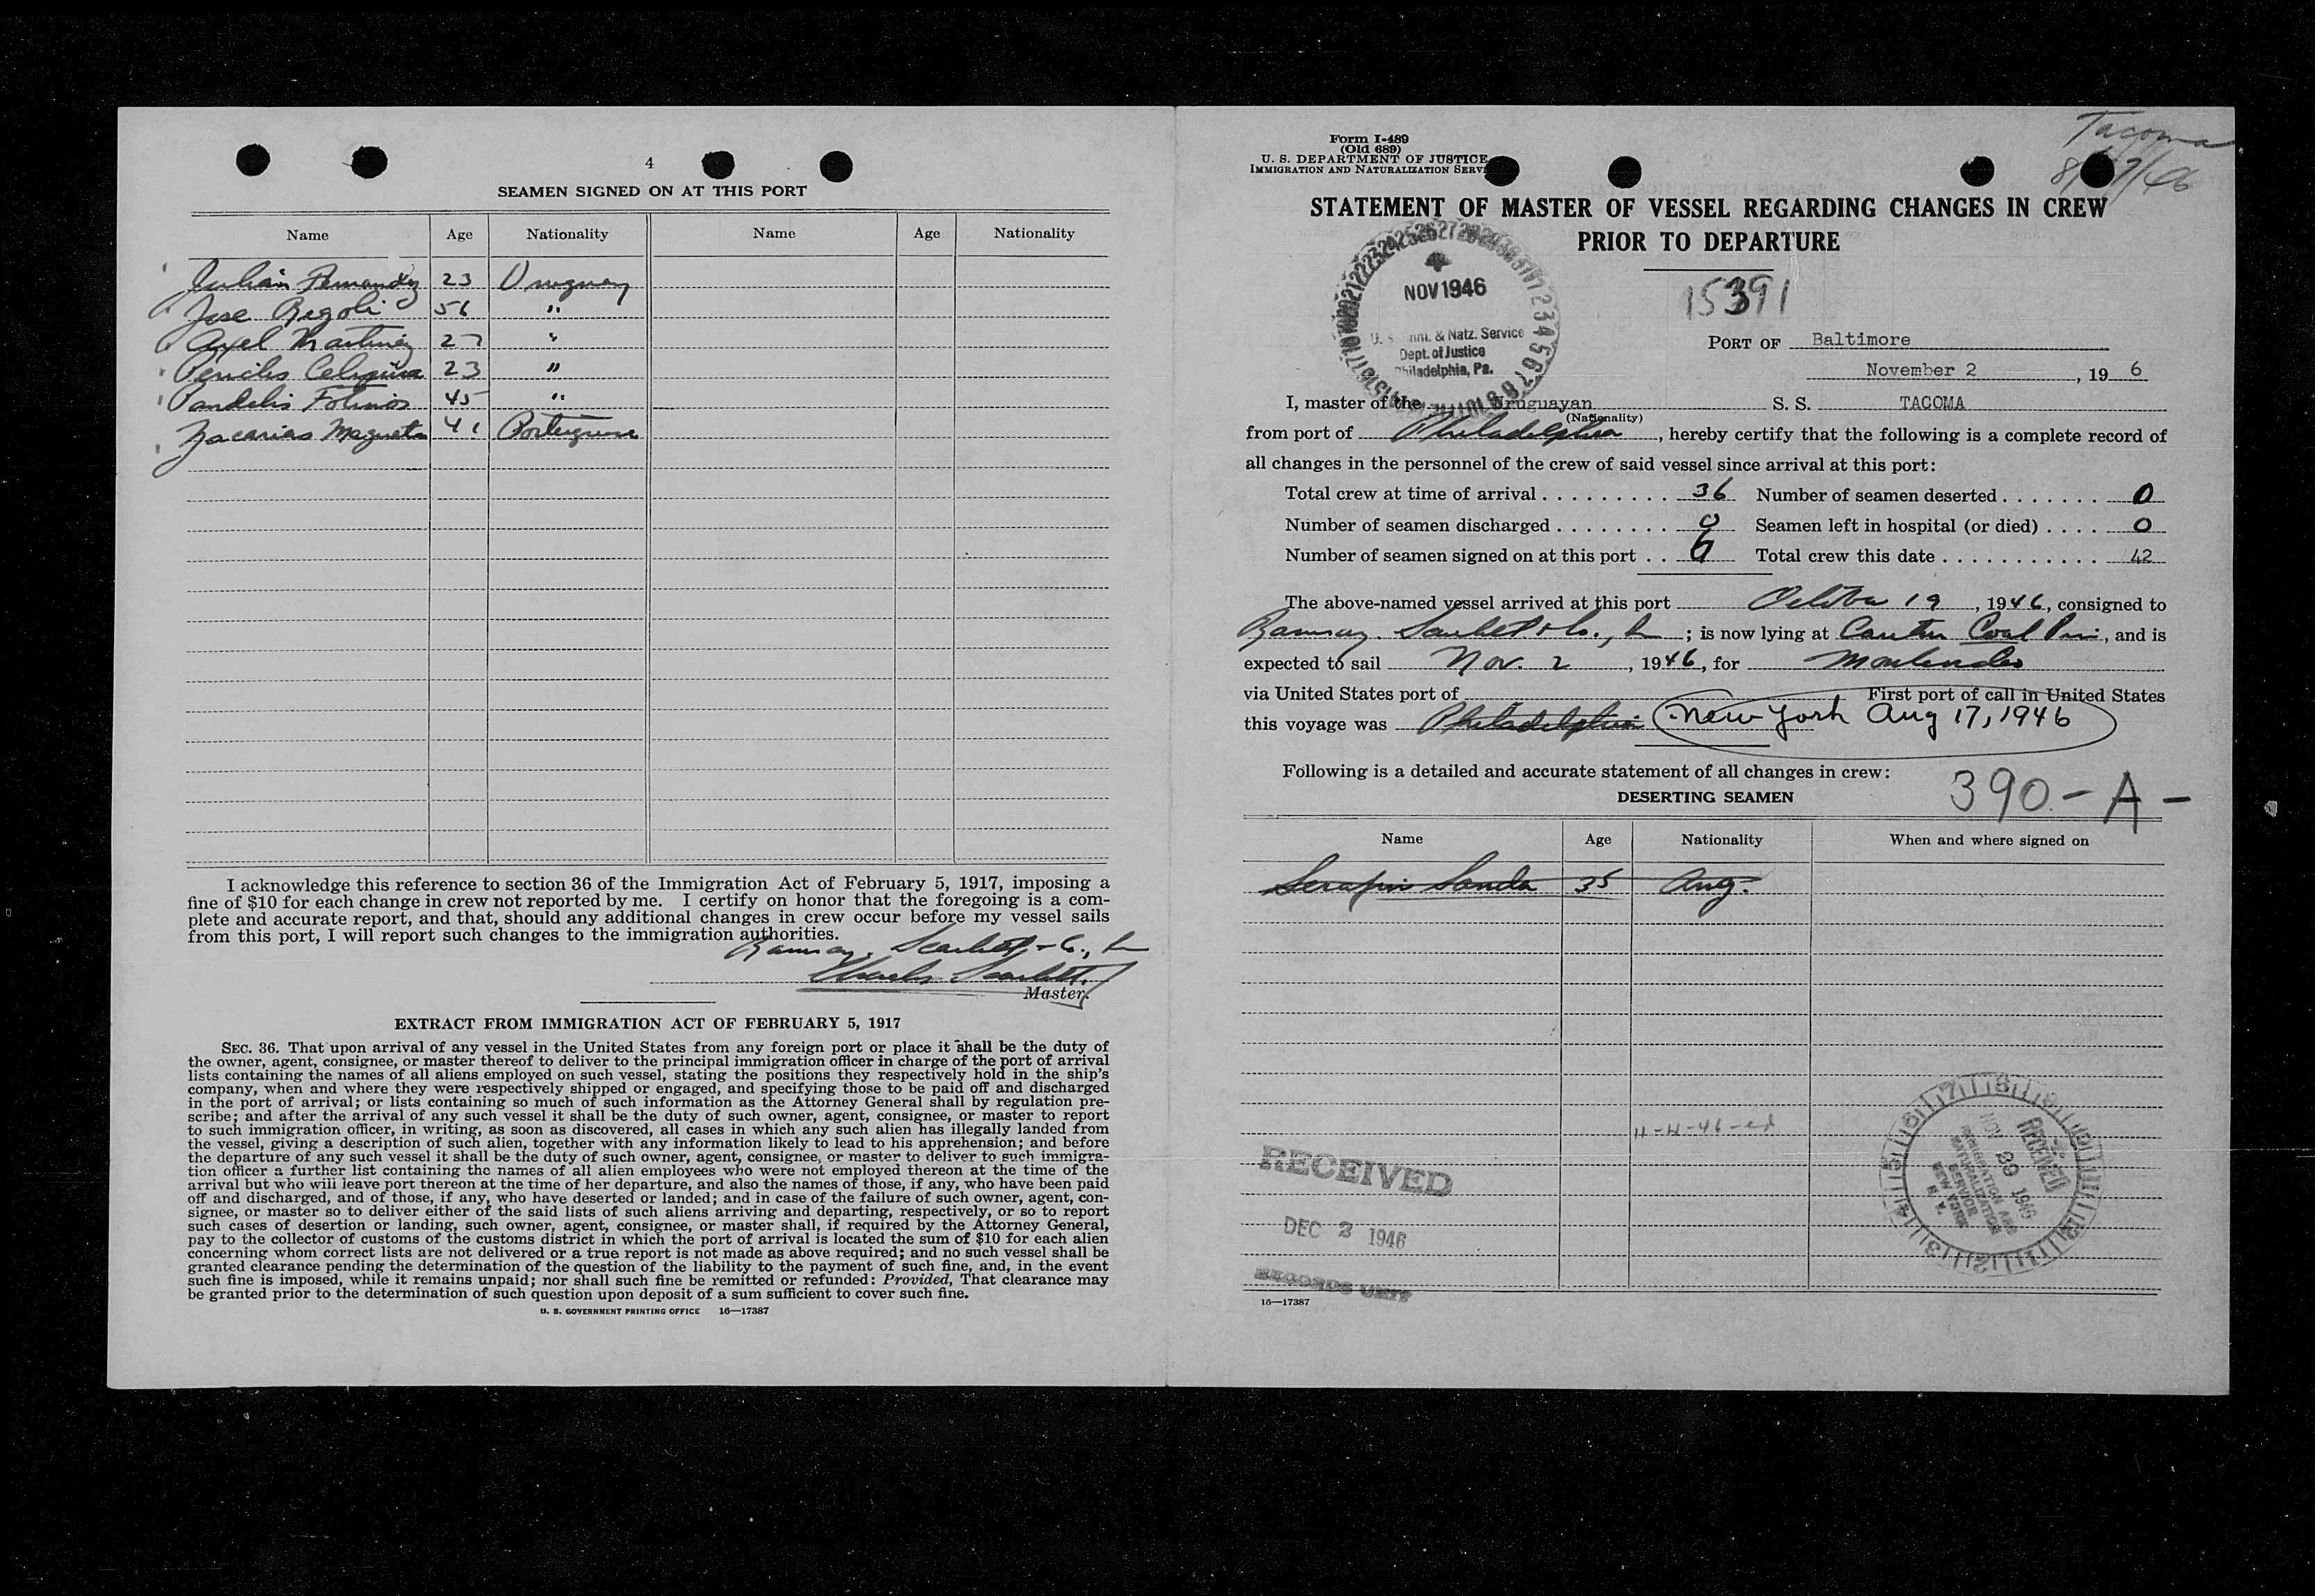 4
SEAMEN SIGNED ON AT THIS PORT
Name Age Nationality Name Age Nationality
Julian Fernandez 23 Uruguay
Jose Regoli 56 "
Axel Martinez 27 "
23 "
Pandelis 45 "
Zacarias 41 Portuguese
I acknowledge this reference to section 36 of the Immigration Act of February 5, 1917, imposing a
fine of $10 for each change in crew not reported by me. I certify on honor that the foregoing is a com-
plete and accurate report, and that, should any additional changes in crew occur before my vessel sails
from this port, I will report such changes to the immigration authorities.
Ramsay, Scarlett + Co.,
Charles Scarlett
Master.
EXTRACT FROM IMMIGRATION ACT OF FEBRUARY 5, 1917
SEC. 36. That upon arrival of any vessel in the United States from any foreign port or place it shall be the duty of
the owner, agent, consignee, or master thereof to deliver to the principal immigration officer in charge of the port of arrival
lists containing the names of all aliens employed on such vessel, stating the positions they respectively hold in the ship's
company, when and where they were respectively shipped or engaged, and specifying those to be paid off and discharged
in the port of arrival; or lists containing so much of such information as the Attorney General shall by regulation pre-
scribe; and after the arrival of any such vessel it shall be the duty of such owner, agent, consignee, or master to report
to such immigration officer, in writing, as soon as discovered, all cases in which any such alien has illegally landed from
the vessel, giving a description of such alien, together with any information likely to lead to his apprehension; and before
the departure of any such vessel it shall be the duty of such owner, agent, consignee, or master to deliver to such immigra-
tion officer a further list containing the names of all alien employees who were not employed thereon at the time of the
arrival but who will leave port thereon at the time of her departure, and also the names of those, if any, who have been paid
off and discharged, and of those, if any, who have deserted or landed; and in case of the failure of such owner, agent, con-
signee, or master so to deliver either of the said lists of such aliens arriving and departing, respectively, or so to report
such cases of desertion or landing, such owner, agent, consignee, or master shall, if required by the Attorney General,
pay to the collector of customs of the customs district in which the port of arrival is located the sum of $10 for each alien
concerning whom correct lists are not delivered or a true report is not made as above required; and no such vessel shall be
granted clearance pending the determination of the question of the liability to the payment of such fine, and, in the event
such fine is imposed, while it remains unpaid; nor shall such fine be remitted or refunded: Provided, That clearance may
be granted prior to the determination of such question upon deposit of a sum sufficient to cover such fine.
U. S. GOVERNMENT PRINTING OFFICE 16—17387
Tacoma
8/17/46
Form I-489
(Old 689)
U. S. DEPARTMENT OF JUSTICE
IMMIGRATION AND NATURALIZATION SERVICE
STATEMENT OF MASTER OF VESSEL REGARDING CHANGES IN CREW
PRIOR TO DEPARTURE
NOV 1946
U. S. Imm. & Natz. Service
Dept. of Justice
Philadelphia, Pa.
15391
PORT OF Baltimore
November 2, 19 6
I, master of the Uruguayan S. S. TACOMA
(Nationality)
from port of Philadelphia, hereby certify that the following is a complete record of
all changes in the personnel of the crew of said vessel since arrival at this port:
Total crew at time of arrival . . . . . . . . . 36 Number of seamen deserted . . . . . . . 0
Number of seamen discharged . . . . . . . . 0 Seamen left in hospital (or died) . . . . 0
Number of seamen signed on at this port . . 6 Total crew this date . . . . . . . . . . . 42
The above-named vessel arrived at this port October 19, 1946, consigned to
Ramsay, Scarlett + Co.,; is now lying at Canton Coal Pier, and is
expected to sail Nov. 2, 1946, for Montevideo
via United States port of First port of call in United States
this voyage was Philadelphia New York Aug 17, 1946
Following is a detailed and accurate statement of all changes in crew:
390-A-
DESERTING SEAMEN
Name Age Nationality When and where signed on
Serafin 35 Arg.
RECEIVED
DEC 2 1946
RECORDS UNIT
RECEIVED
NOV 29 1946
IMMIGRATION AND
NATURALIZATION
SERVICE
NEW YORK
N. Y.
16—17387